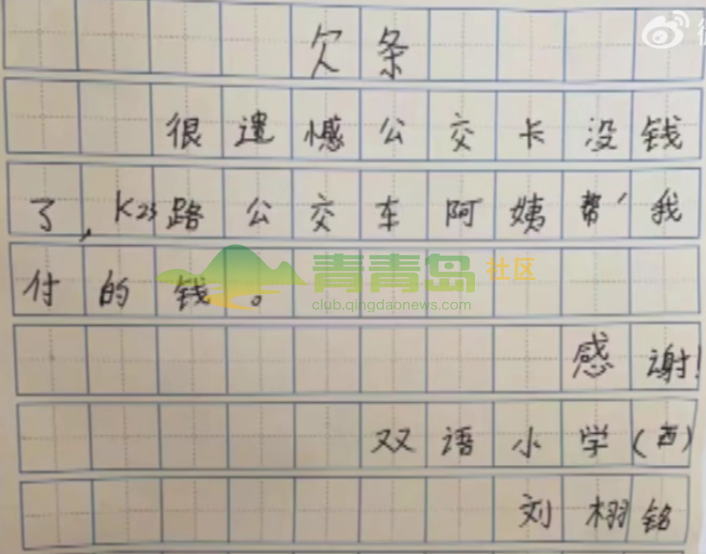 欠条
很遗憾公交卡没钱
了,K23路公交车阿姨帮我
付的钱。
青青岛社区
club.qingdaonews.com
感谢!
双语小学(西)
刘栩铭